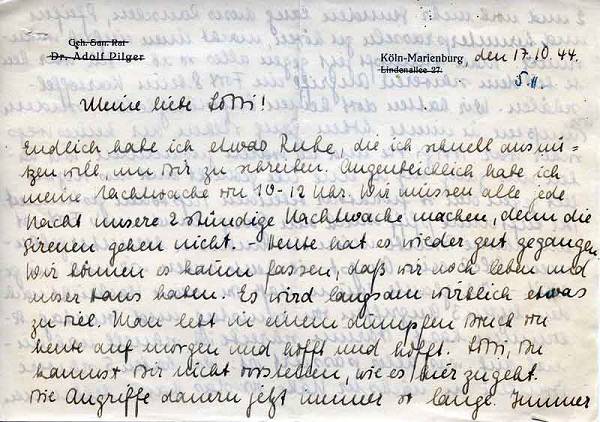 Geh. San. Rat
Dr. Adolf Pilger
Köln-Marienburg, den 17.10.44.
Lindenallee 27.
Meine liebe Lotti!
Endlich habe ich etwas Ruhe, die ich schnell ausnut=
zen will, um Dir zu schreiben. Augenblicklich habe ich
meine Nachtwache von 10-12 Uhr. Wir müssen alle jede
Nacht unsere 2 stündige Nachtwache machen, denn die
Sirenen gehen nicht. - Heute hat es wieder gut gegangen
Wir können es kaum fassen, daß wir noch leben und
unser Haus haben. Es wird langsam wirklich etwas
zu viel. Man lebt in einem dumpfen Druck von
heute auf morgen und hofft und hofft. Lotti, Du
kannst Dir nicht vorstellen, wie es hier zugeht.
Die Angriffe dauern jetzt immer so lange. Immer